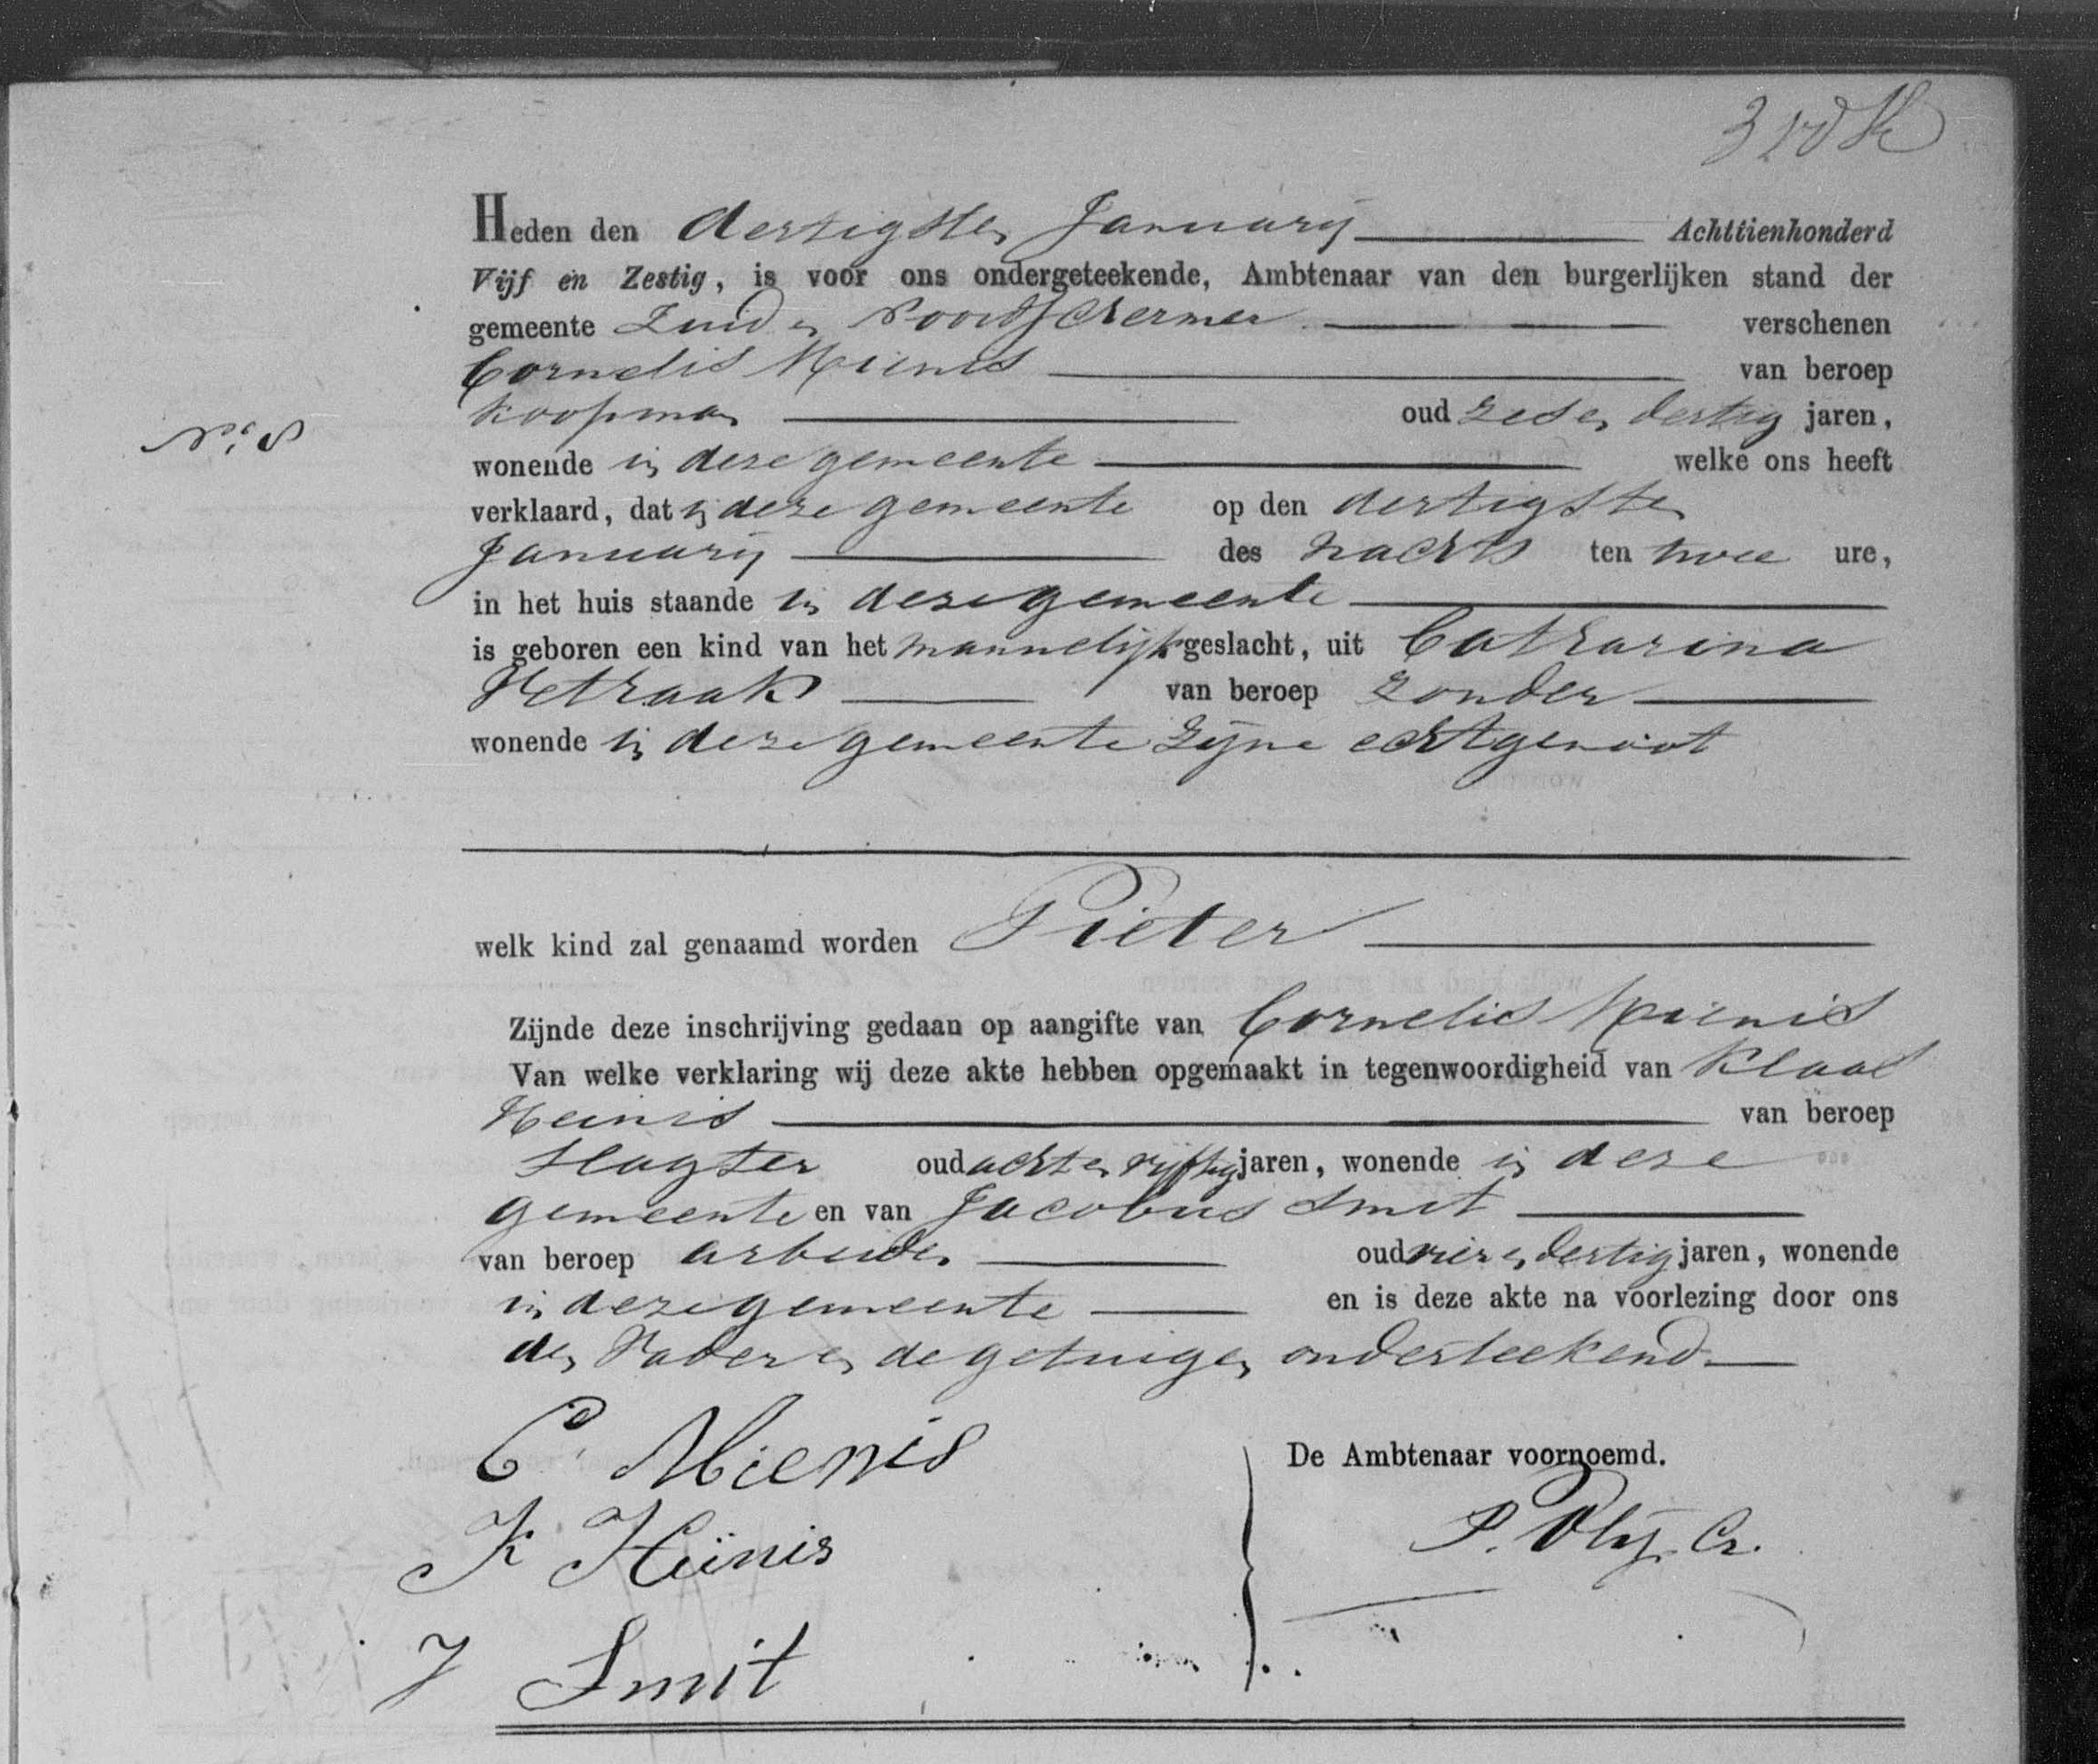 Heden den dertigsten Januarij Achttienhonderd
Vijf en Zestig, is voor ons ondergeteekende, Ambtenaar van den burgerlijken stand der
gemeente Zuid en Noordschermer verschenen
Cornelis Mienis van beroep
koopman oud zes en dertig jaren,
wonende in deze gemeente welke ons heeft
verklaard, dat in deze gemeente op den dertigsten
Januarij des nachts ten twee ure,
in het huis staande in deze gemeente
is geboren een kind van het mannelijk geslacht, uit Catharina
van beroep zonder
wonende in deze gemeente zijne echtgenoot
welk kind zal genaamd worden Pieter
Zijnde deze inschrijving gedaan op aangifte van Cornelis Mienis
Van welke verklaring wij deze akte hebben opgemaakt in tegenwoordigheid van Klaas
Heinis van beroep
Slagter oud acht en vijftig jaren, wonende in deze
gemeente en van Jacobus Smit
van beroep arbeider oud vier en dertig jaren, wonende
in deze gemeente en is deze akte na voorlezing door ons
den Vader en de getuigen onderteekend
C Mienis
De Ambtenaar voornoemd.
K Heinis
J Smit